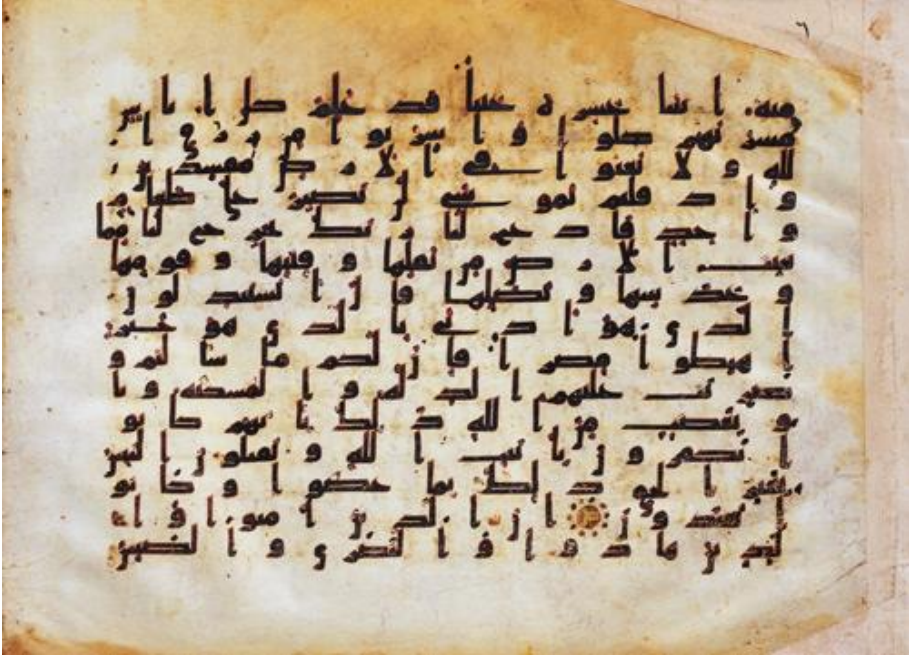 منه اثنتا عشرة عينا قد علم كل اناس
مشربهم كلوا واشربوا من رزق ا
لله ولا تعثوا في الارض مفسدين
واذ قلتم يموسى لن نصبر على طعام
واحد فادع لنا ربك يخرج لنا مما
تنبت الارض من بقلها وقثائها وفومها
وعدسها وبصلها قال اتستبدلون
الذي هو ادنى بالذي هو خير
اهبطوا مصرا فان لكم ما سالتم و
ضربت عليهم الذلة والمسكنة وبا
و بغضب من الله ذلك بانهم كانو
ا يكفرون بايت الله ويقتلون النبين
بغير الحق ذلك بما عصوا وكانو
ا يعتدون ان الذين امنوا وا
لذين هادوا والنصرى والصبين